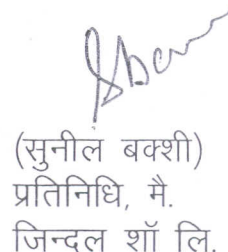 (सुनील बक्शी)
प्रतिनिधि, मै.
जिन्दल शॉ लि.